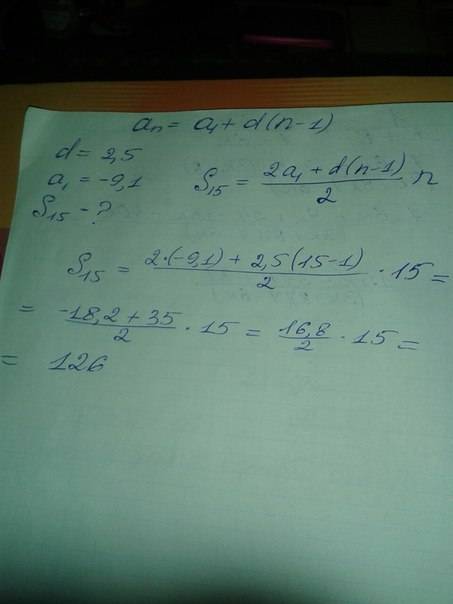 aₙ = a₁ + d(n-1)
d = 2,5
a₁ = -9,1 S₁₅ = (2a₁ + d(n-1))/2 n
S₁₅ - ?
S₁₅ = (2·(-9,1) + 2,5(15-1))/2 · 15 =
= (-18,2 + 35)/2 · 15 = 16,8/2 · 15 =
= 126